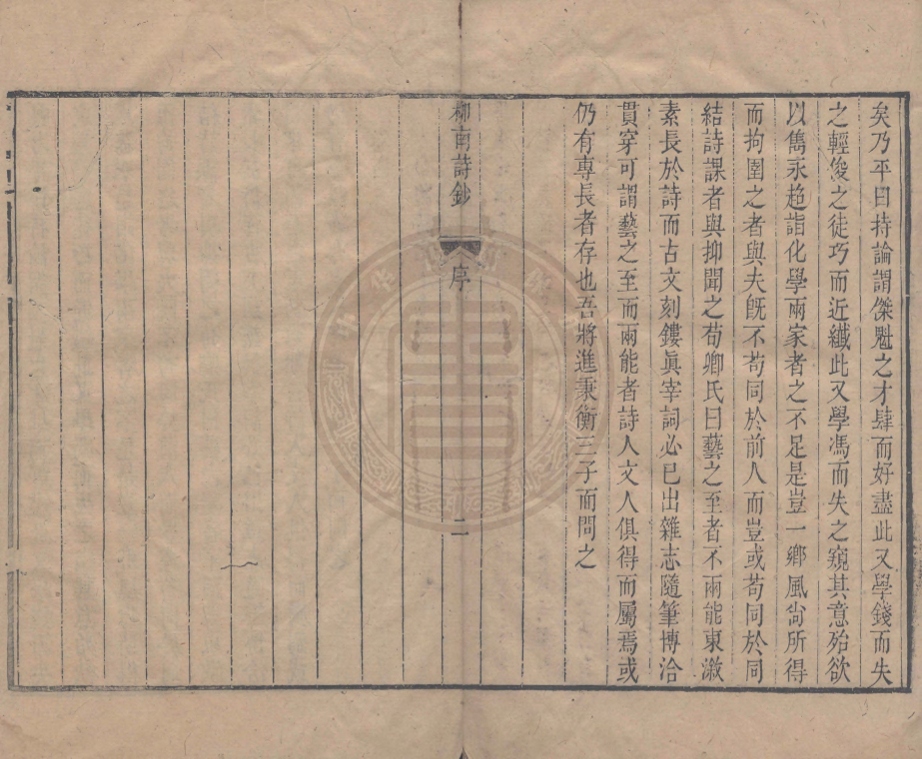 矣乃平日持論謂傑魁之才肆而好盡此又學錢而失
之輕俊之徒巧而近纖此又學馮而失之窺其意殆欲
以雋永超詣化學兩家者之不足是豈一鄉風尚所得
而拘圍之者與夫旣不苟同於前人而豈或苟同於同
結詩課者與抑聞之荀卿氏曰藝之至者不兩能東漵
素長於詩而古文刻鏤眞宰詞必已出雜志隨筆博洽
貫穿可謂藝之至而兩能者詩人文人俱得而屬焉或
仍有專長者存也吾將進秉衡三子而問之
柳南詩鈔
序
二